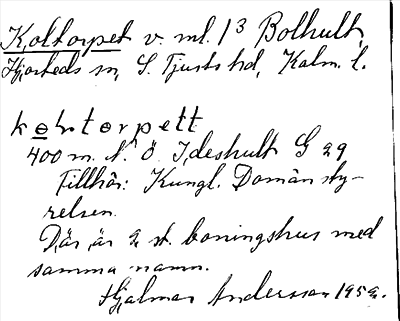 Koltorpet v. ml. 1³ Bolhult,
Hjorteds sn, S. Tjusts hd, Kalm. l.
koltorpett
400 m. N. Ö. Ideshult G 29
Tillhör: Kungl. Domän sty-
relsen.
Där är 2 st. boningshus med
samma namn.
Hjalmar Andersson 1952.